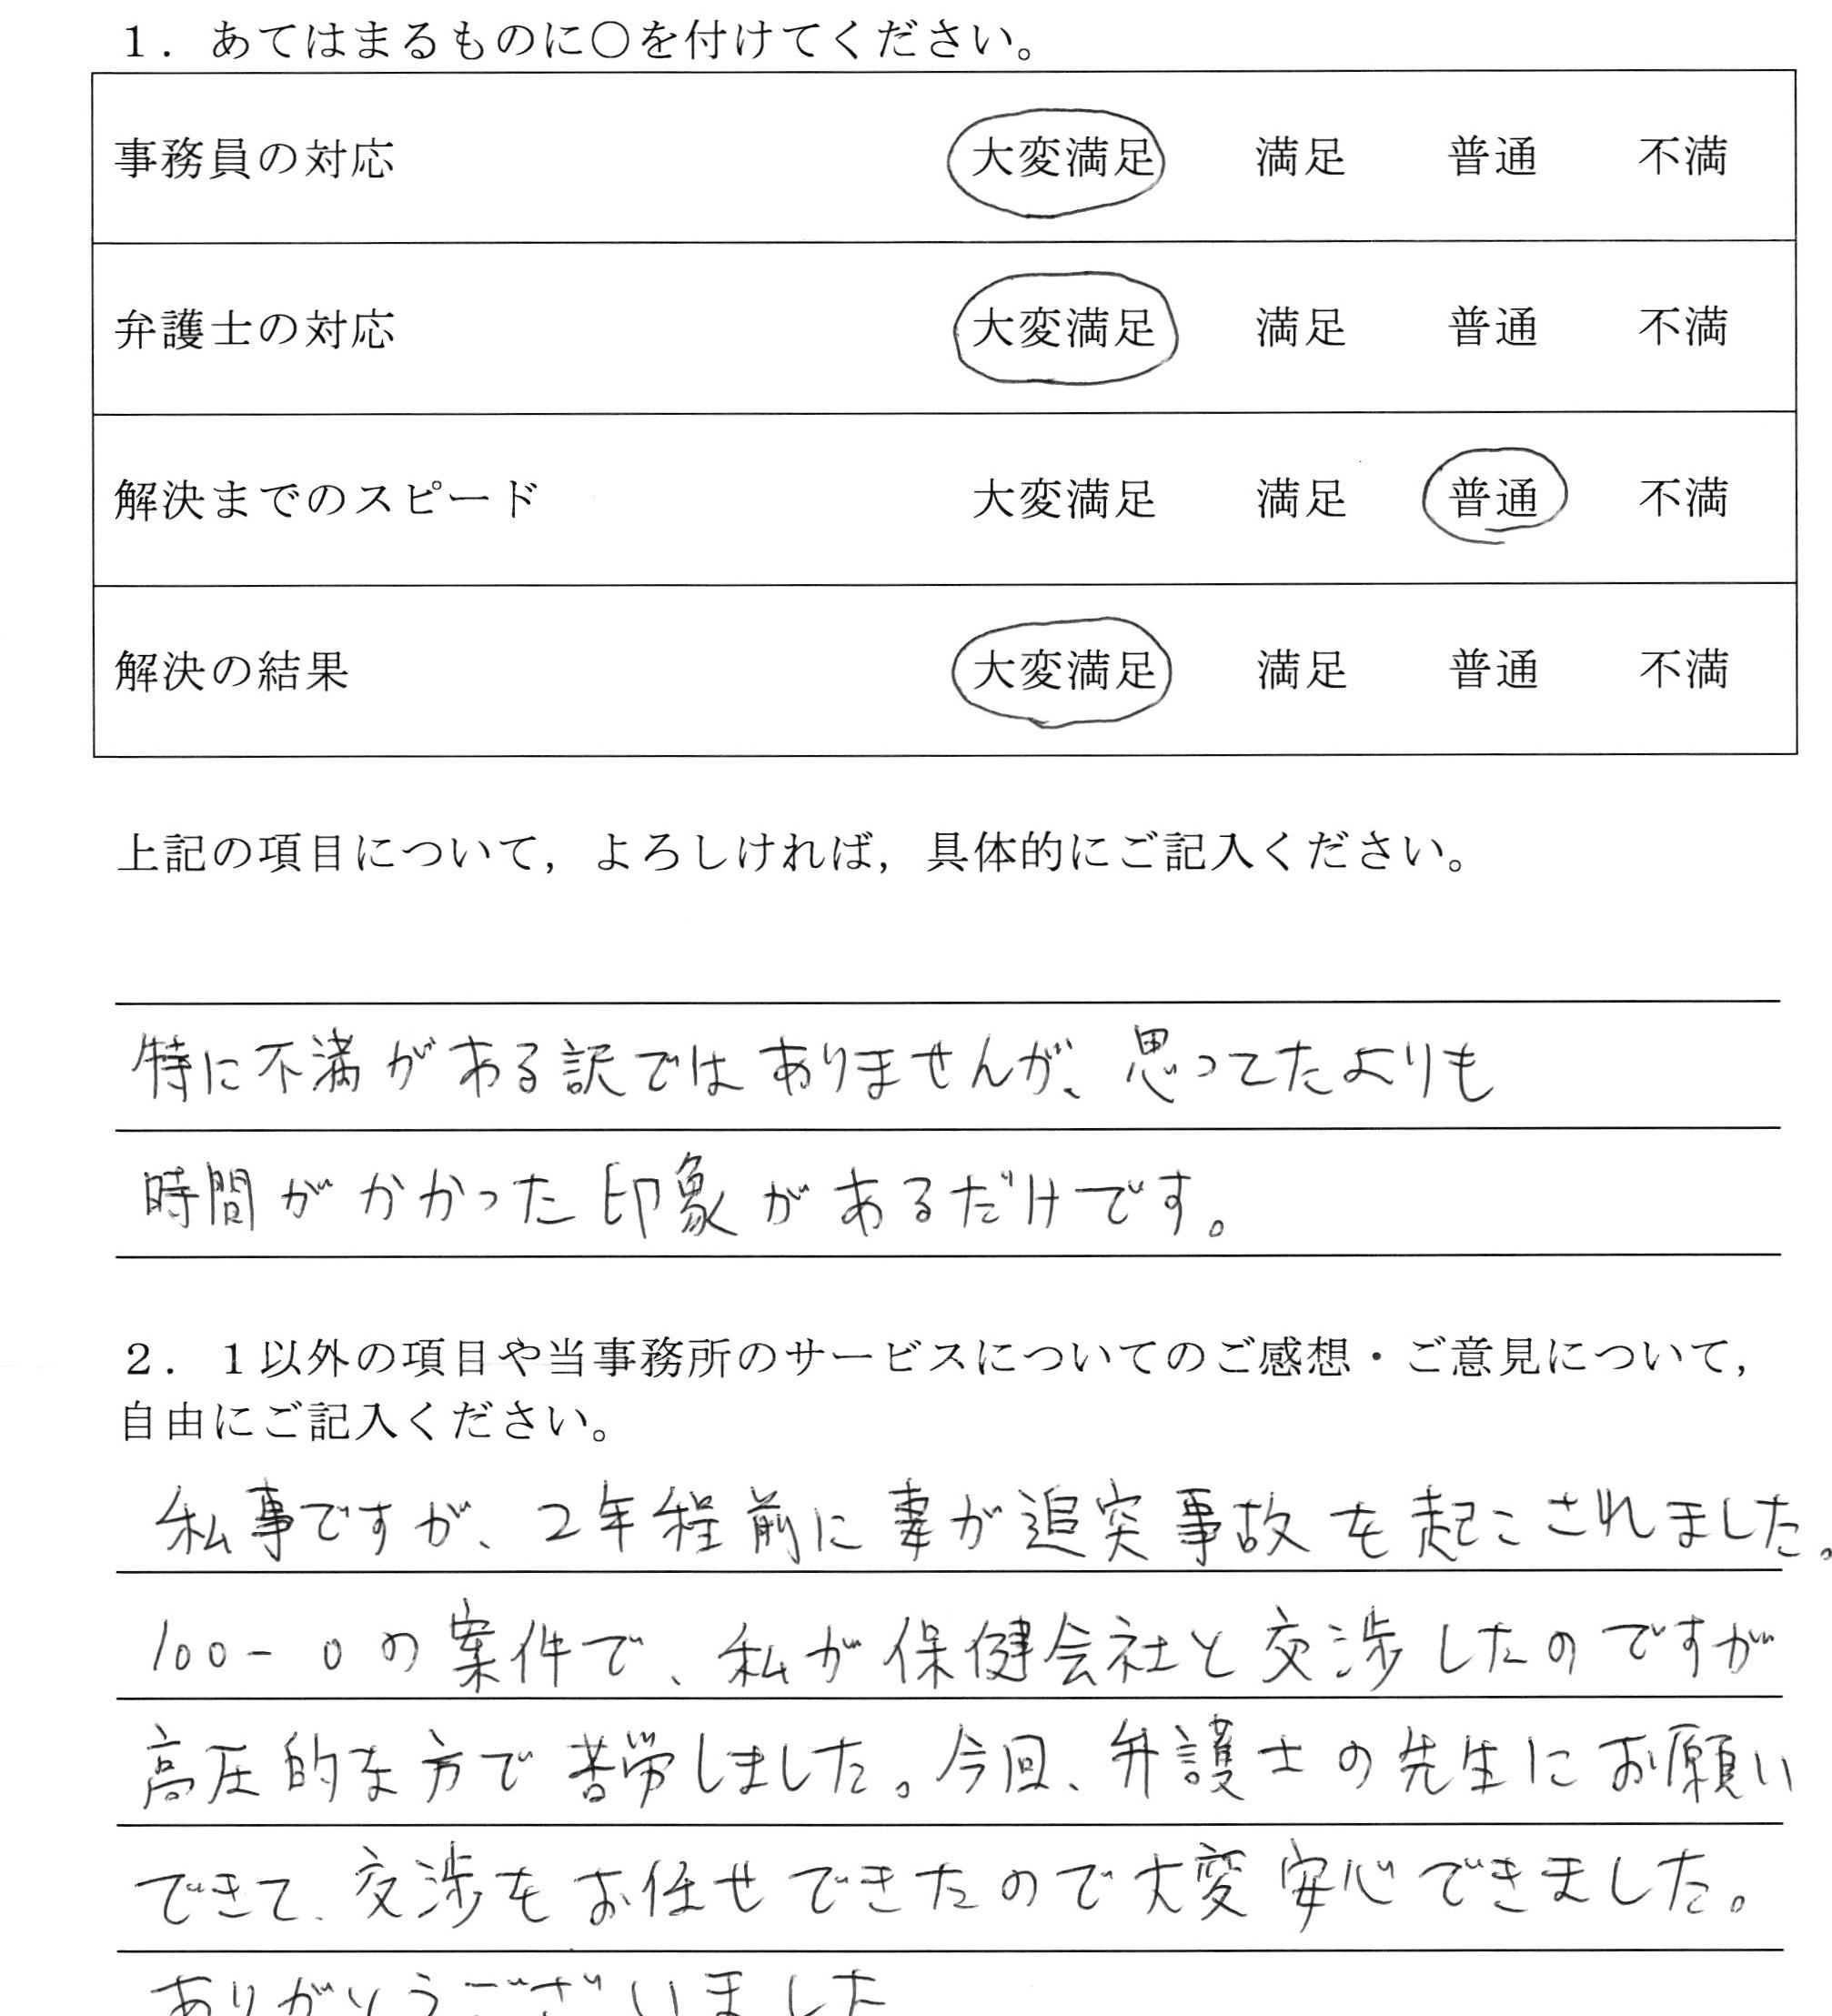 1．あてはまるものに○を付けてください。
事務員の対応 大変満足 満足 普通 不満
弁護士の対応 大変満足 満足 普通 不満
解決までのスピード 大変満足 満足 普通 不満
解決の結果 大変満足 満足 普通 不満
上記の項目について，よろしければ，具体的にご記入ください。
特に不満がある訳ではありませんが、思ってたよりも
時間がかかった印象があるだけです。
2．1以外の項目や当事務所のサービスについてのご感想・ご意見について，
自由にご記入ください。
私事ですが、2年程前に妻が追突事故を起こされました。
100-0の案件で、私が保健会社と交渉したのですが
高圧的な方で苦労しました。今回、弁護士の先生にお願い
できて、交渉をお任せできたので大変安心できました。
ありがとうございました